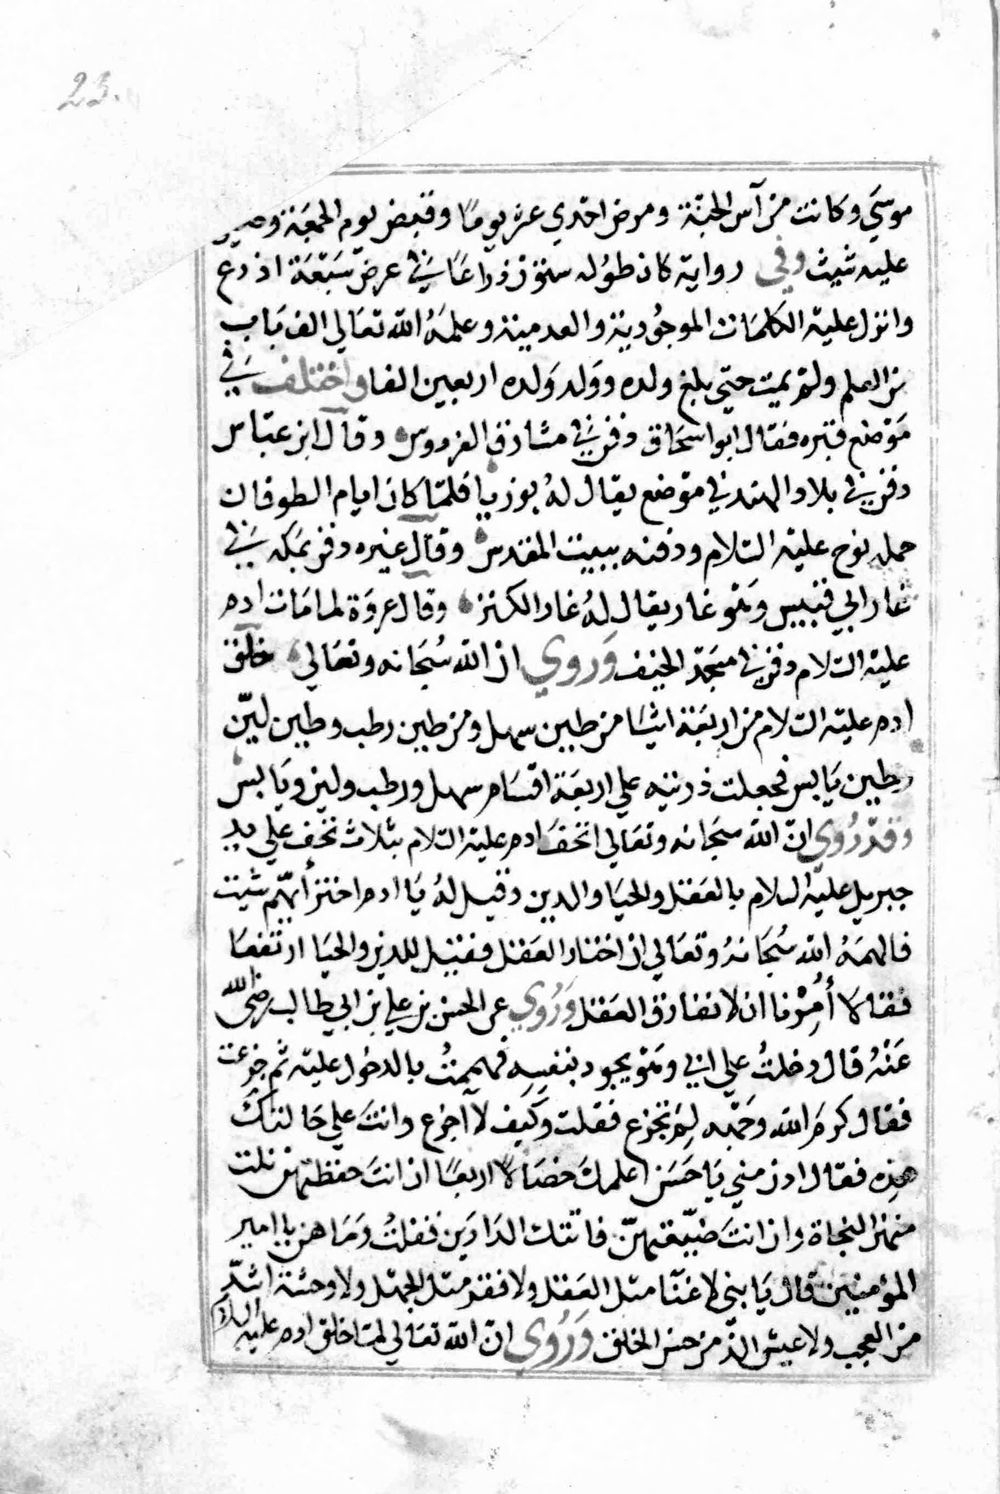 23.
موسي وكانت من آس الجنة ومرض احدي عشر يوما وقبض يوم الجمعة
عليه شيث وفي رواية كان طوله ستون ذراعا في عرض سبعة اذرع
وانزل عليه الكلمات الموجودية والعدمية وعلمه الله تعالي الف باب
من العلم ولم يمت حتي بلغ ولده وولد ولده اربعين الفا واختلف في
موضع قبره فقال ابو اسحاق دفن في مشارق الفردوس وقال ابن عباس
دفن في بلاد الهند في موضع يقال له بوزيا فلما كان ايام الطوفان
حمله نوح عليه السلام ودفنه ببيت المقدس وقال غيره دفن بمكة في
غار ابي قبيس وهو غار يقال له غار الكنز وقال عروة لما مات ادم
عليه السلام دفن في مسجد الخيف وروي ان الله سبحانه وتعالي خلق
ادم عليه السلام من اربعة اشيا من طين سهل ومن طين رطب وطين لين
وطين يابس فجعلت ذريته علي اربعة اقسام سهل ورطب ولين ويابس
وقد روي ان الله سبحانه وتعالي اتحف ادم عليه السلام بثلاث تحف علي يد
جبريل عليه السلام بالعقل والحيا والدين وقيل له يا ادم اختر أيهم شيت
فالهمه الله سبحانه وتعالي ان اختار العقل فقيل للدين والحيا ارتفعا
فقالا أمرنا ان لا نفارق العقل وروي عن الحسن بن علي بن ابي طالب رضي الله
عنه قال دخلت علي ابي وهو يجود بنفسه فهممت بالدخول عليه ثم جزعت
فقال كرم الله وجهه لم تجزع فقلت وكيف لا أجزع وانت علي حالتك
هذه فقال ادن مني يا حسن اعلمك خصالا اربعا ان انت حفظتهن نلت
منهن النجاة وان انت ضيعتهن فاتتك الدارين فقلت وما هن يا امير
المؤمنين قال يا بني لا غنا مثل العقل ولا فقر مثل الجهل ولا وحشة اشد
من العجب ولا عيش الذ من حسن الخلق وروي ان الله تعالي لما خلق ادم عليه السلام